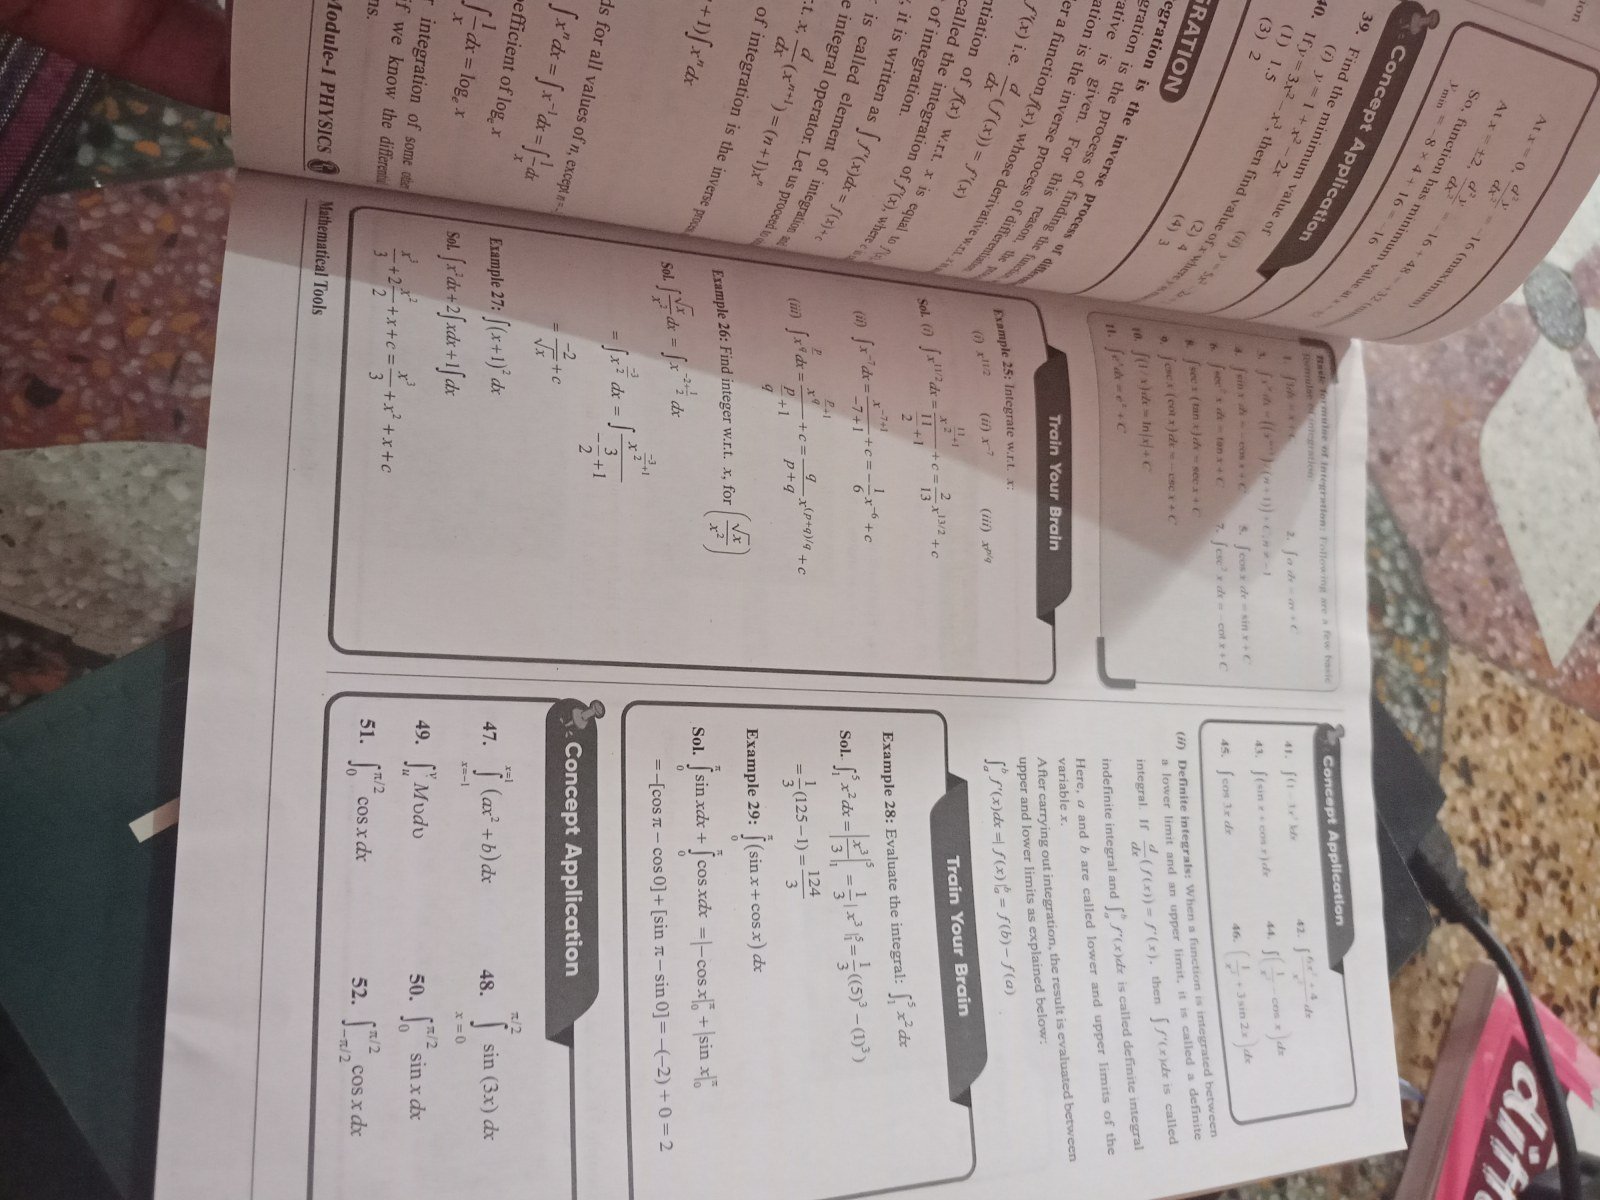 At x = 0, d²y/dx² = -16 (maximum)
At x = ±2, d²y/dx² = -16 + 48 = +32
So, function has minimum value at x =
y min = -8 × 4 + 16 = -16
Concept Application
39. Find the minimum value of
(i) y = 1 + x² - 2x (ii) y = 5x² - 2x
40. If y = 3x² - x³, then find value of x where
(1) 1.5 (2) 4
(3) 2 (4) 3
RATION
egration is the inverse process of
gration is the process of finding the
ative is given. For this reason, the
ation is the inverse process of
er a function f(x), whose derivative w.r.t. x
f'(x) i.e. d/dx (f(x)) = f'(x)
called the integration of f(x) w.r.t. x is equal to
of integration of f'(x), where c
, it is written.
is called as ∫ f'(x)dx = f(x) + c
e integral operator. Let us proceed to
.t. x, d/dx (xⁿ⁺¹) = (n + 1)xⁿ
of integration is the inverse
+ 1) ∫ xⁿ dx
ds for all values of n, except n =
∫ xⁿ dx = ∫ x⁻¹ dx = ∫ 1/x dx
efficient of logₑ x
∫ 1/x dx = logₑ x
integration of some other
if we know the differential
ns.
Module-1 PHYSICS
Basic formulae of integration: Following are a few basic
formulae of integration:
1. ∫ dx = x + C 2. ∫ a dx = ax + C
3. ∫ xⁿ dx = ((xⁿ⁺¹)/(n+1)) + C; n ≠ -1
4. ∫ sin x dx = -cos x + C 5. ∫ cos x dx = sin x + C
6. ∫ sec² x dx = tan x + C 7. ∫ csc² x dx = -cot x + C
8. ∫ sec x (tan x) dx = sec x + C
9. ∫ csc x (cot x) dx = -csc x + C
10. ∫ (1/x) dx = ln|x| + C
11. ∫ eˣ dx = eˣ + C
Train Your Brain
Example 25: Integrate w.r.t. x:
(i) x^{11/2} (ii) x⁻⁷ (iii) x^{p/q}
Sol. (i) ∫ x^{11/2} dx = x^{11/2+1}/(11/2+1) + c = 2/13 x^{13/2} + c
(ii) ∫ x⁻⁷ dx = x^{-7+1}/(-7+1) + c = -1/6 x⁻⁶ + c
(iii) ∫ x^{p/q} dx = x^{p/q+1}/(p/q+1) + c = q/(p+q) x^{(p+q)/q} + c
Example 26: Find integer w.r.t. x, for (√x/x²)
Sol. ∫ √x/x² dx = ∫ x^{-2+1/2} dx
= ∫ x^{-3/2} dx = ∫ x^{-3/2+1}/(-3/2+1)
= -2/√x + c
Example 27: ∫ (x+1)² dx
Sol. ∫ x² dx + 2 ∫ x dx + 1 ∫ dx
x³/3 + 2 x²/2 + x + c = x³/3 + x² + x + c
Mathematical Tools
Concept Application
41. ∫ (1 - 3x²)dx 42. ∫ (6x³ + 4)/x² dx
43. ∫ (sin x + cos x) dx 44. ∫ (1/x² - cos x) dx
45. ∫ cos 3x dx 46. (1/x² + 3 sin 2x) dx
(ii) Definite integrals: When a function is integrated between
a lower limit and an upper limit, it is called a definite
integral. If d/dx (f(x)) = f'(x), then ∫ f'(x)dx is called
indefinite integral and ∫ₐᵇ f'(x)dx is called definite integral
Here, a and b are called lower and upper limits of the
variable x.
After carrying out integration, the result is evaluated between
upper and lower limits as explained below:
∫ₐᵇ f'(x)dx = | f(x)|ₐᵇ = f(b) - f(a)
Train Your Brain
Example 28: Evaluate the integral: ∫₁⁵ x² dx
Sol. ∫₁⁵ x² dx = |x³/3|₁⁵ = 1/3 |x³|₁⁵ = 1/3 ((5)³ - (1)³)
= 1/3 (125 - 1) = 124/3
Example 29: ∫₀^π (sin x + cos x) dx
Sol. ∫₀^π sin xdx + ∫₀^π cos xdx = |-cos x|₀^π + |sin x|₀^π
= -[cos π - cos 0] + [sin π - sin 0] = -(-2) + 0 = 2
Concept Application
47. ∫_{x=-1}^{x=1} (ax² + b) dx 48. ∫_{x=0}^{π/2} sin (3x) dx
49. ∫ᵤᵛ Mυdυ 50. ∫₀^{π/2} sin x dx
51. ∫₀^{π/2} cos x dx 52. ∫_{-π/2}^{π/2} cos x dx